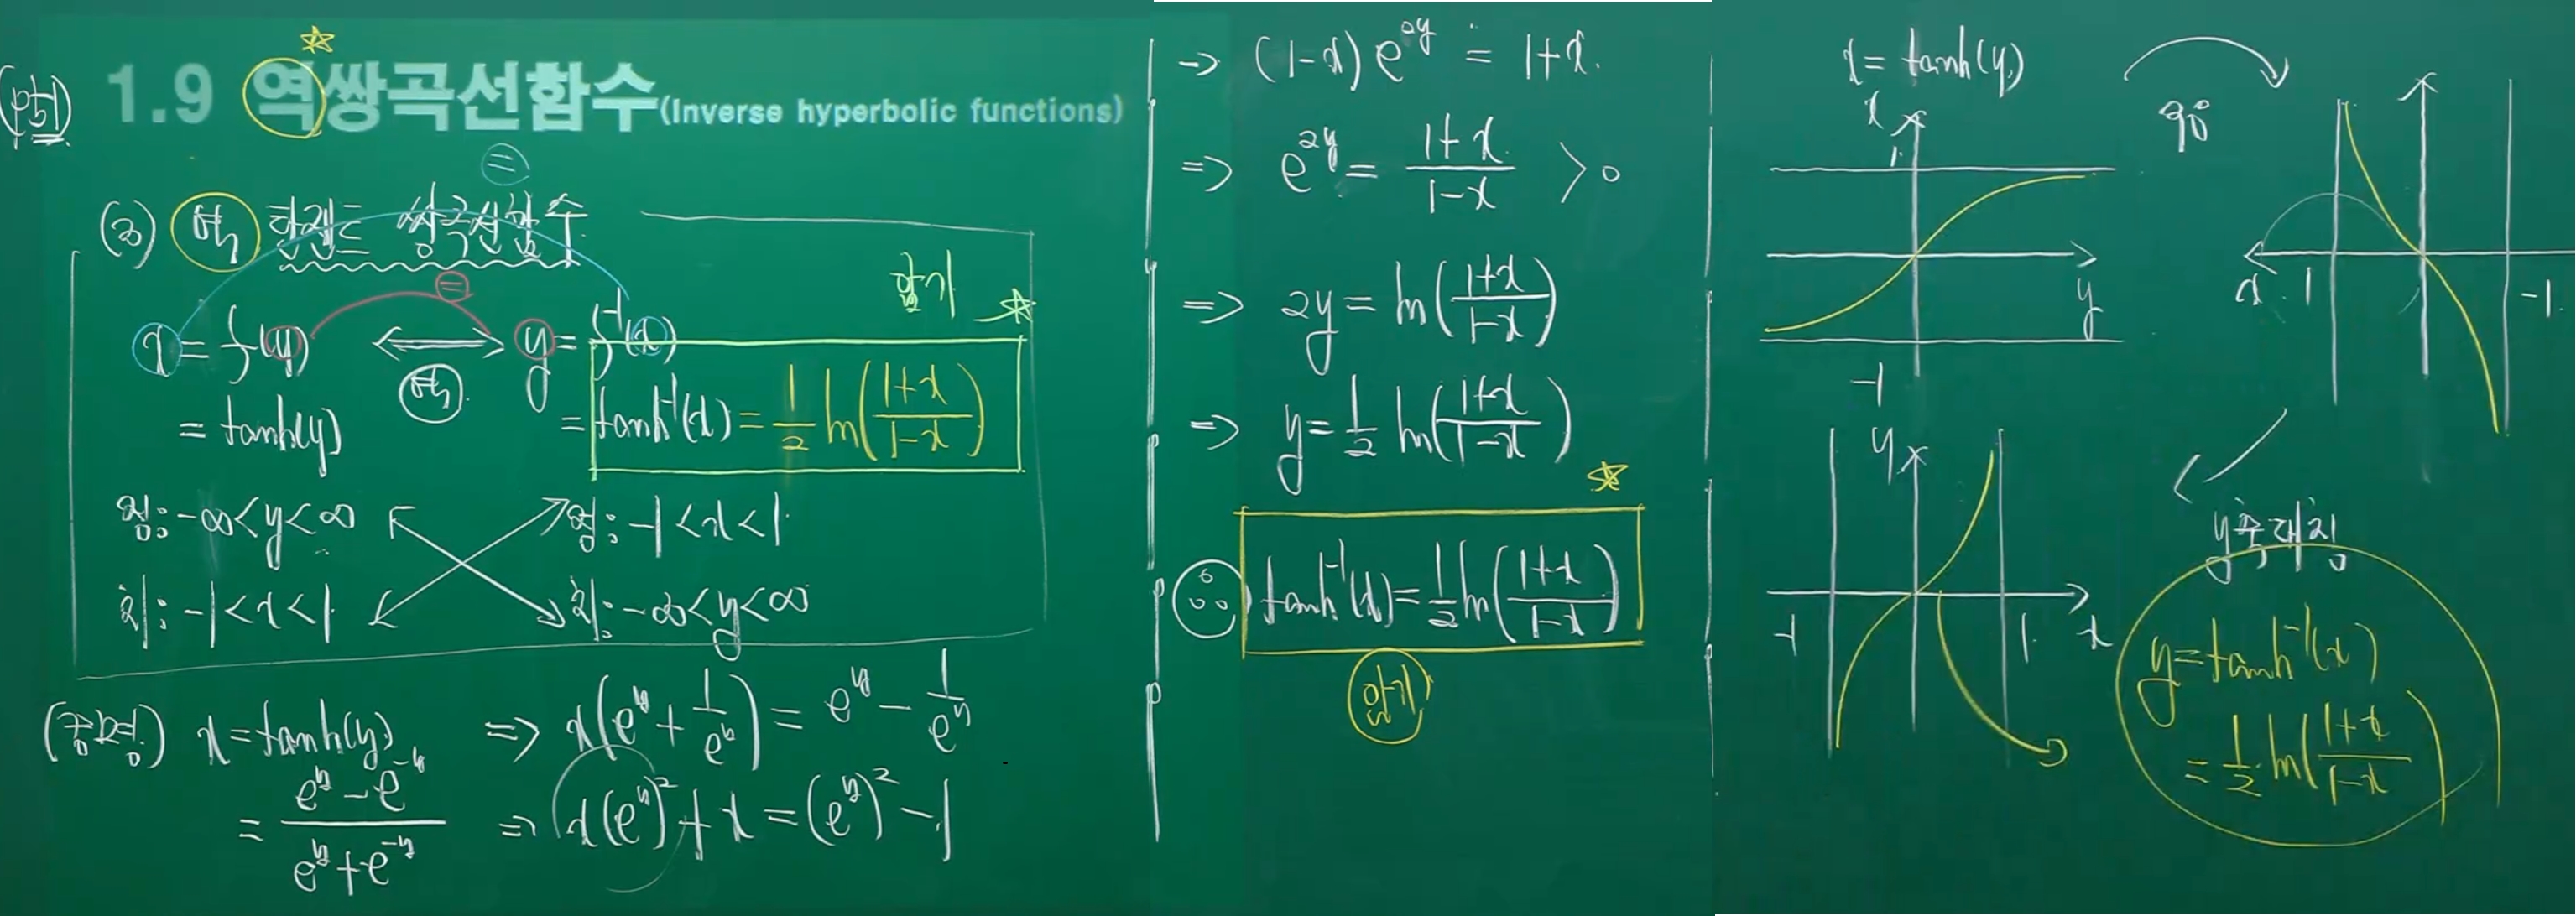 (p51)
1.9 역쌍곡선함수(Inverse hyperbolic functions)
(3) 역 탄젠트 쌍곡선함수
=
=
암기
x = f(y) ⟷ y = f⁻¹(x)
역
= tanh(y)
= tanh⁻¹(x) = 1/2 ln((1+x)/(1-x))
정: -∞<y<∞
정: -1<x<1
치: -1<x<1
치: -∞<y<∞
(증명) x = tanh(y)
= (e^y - e^-y)/(e^y + e^-y)
⇒ x(e^y + 1/e^y) = e^y - 1/e^y
⇒ x(e^y)² + x = (e^y)² - 1
→ (1-x)e^2y = 1+x.
⇒ e^2y = (1+x)/(1-x) > 0
⇒ 2y = ln((1+x)/(1-x))
⇒ y = 1/2 ln((1+x)/(1-x))
tanh⁻¹(x) = 1/2 ln((1+x)/(1-x))
암기
x = tanh(y)
90°
x
1
y
-1
x 1
-1
y축대칭
y
-1
1
x
y = tanh⁻¹(x)
= 1/2 ln((1+x)/(1-x))